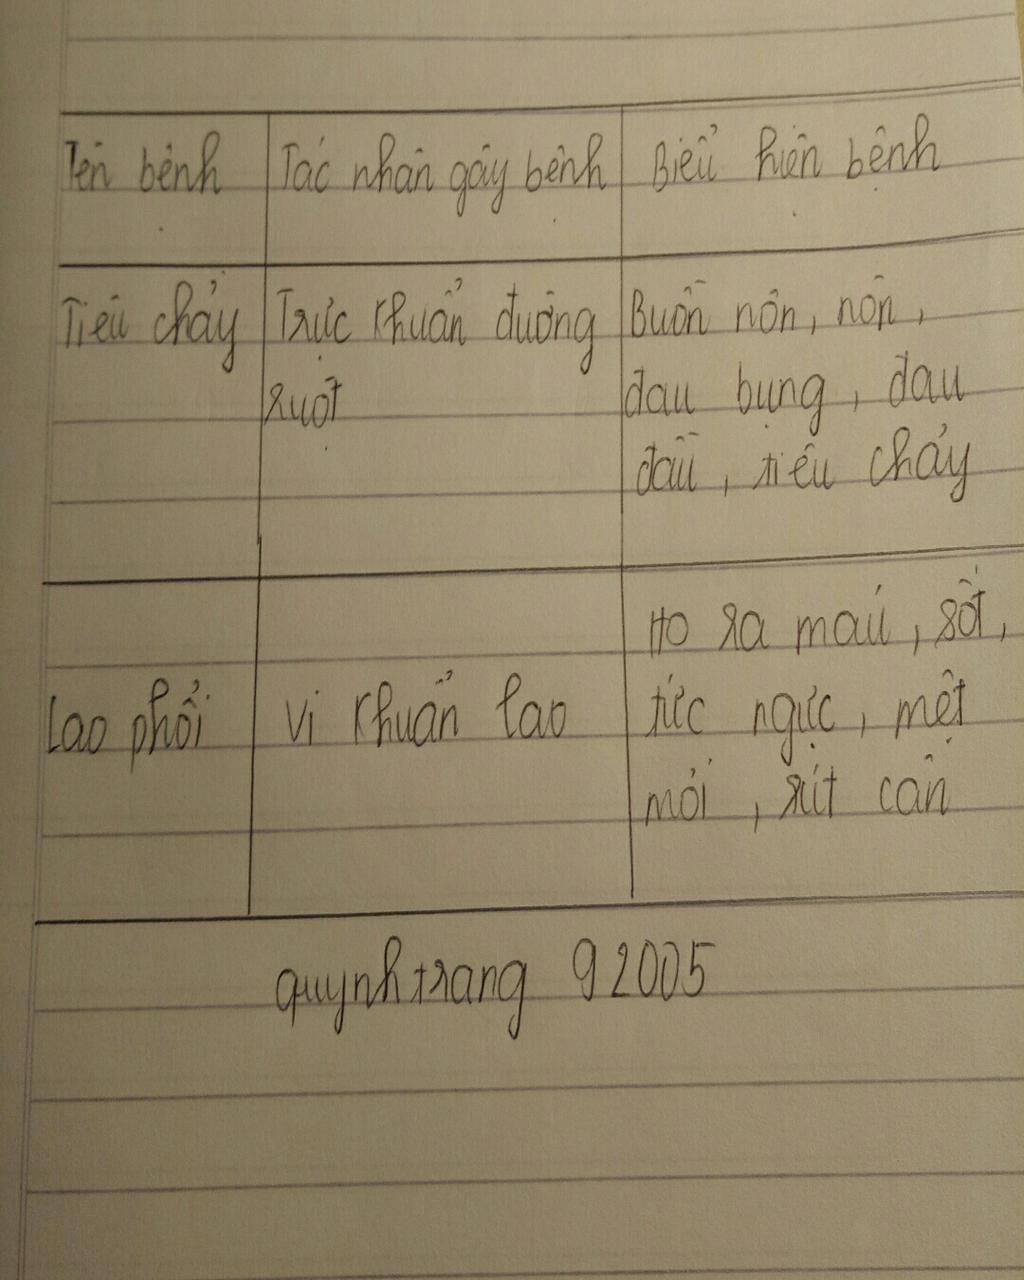 Tên bệnh Tác nhân gây bệnh Biểu hiện bệnh
Tiêu chảy Trực khuẩn đường Buồn nôn, nôn,
ruột đau bụng, đau
đầu, tiêu chảy
Ho ra máu, sốt,
Lao phổi Vi khuẩn lao tức ngực, mệt
mỏi, sút cân
quynhtrang 92005